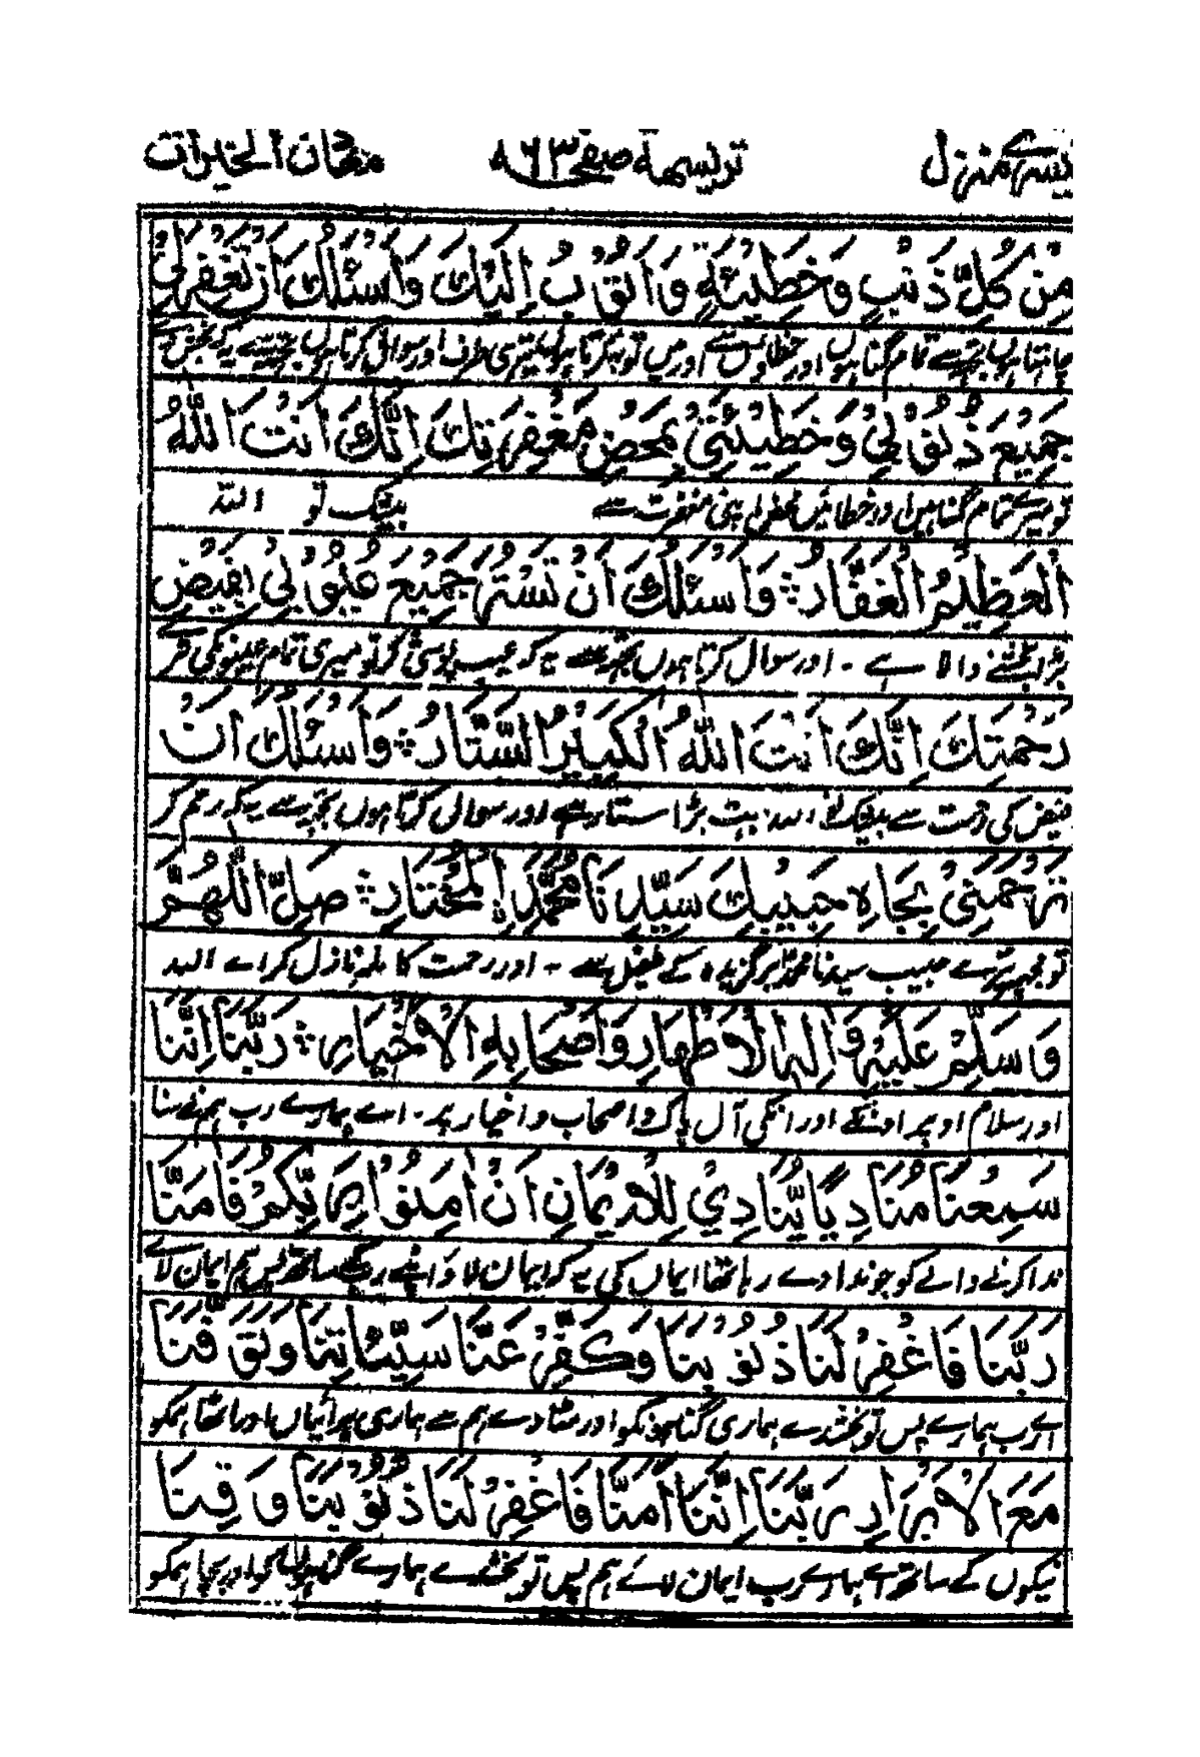 تیسرے منزل تریسٹھ صفحہ ۶۳ معان الخیرات
مِنْ كُلِّ ذَنْبٍ وَخَطِيْئَةٍ وَاَتُوْبُ اِلَيْكَ وَاَسْئَلُكَ اَنْ تَغْفِرَلِيْ
چاہتا ہوں تجھسے تمام گناہوں اور خطاؤں سے اور میں توبہ کرتا ہوں تیری طرف اور سوال کرتا ہوں تجھسے یہ کہ بخش دے
جَمِيْعَ ذُنُوْبِيْ وَخَطِيْئَتِيْ بِمَحْضِ مَغْفِرَتِكَ اِنَّكَ اَنْتَ اللّٰهُ
تو میرے تمام گناہیں اور خطائیں محض اپنی مغفرت سے بیشک تو اللہ
الْعَظِيْمُ الْغَفَّارُ وَاَسْئَلُكَ اَنْ تَسْتُرَ جَمِيْعَ عُيُوْبِيْ بِفَيْضِ
بڑا بخشنے والا ہے ۔ اور سوال کرتا ہوں تجھسے یہ کہ عیب پوشی کر تو میری تمام عیبونکی
رَحْمَتِكَ اِنَّكَ اَنْتَ اللّٰهُ الْكَبِيْرُ السَّتَّارُ وَاَسْئَلُكَ اَنْ
فیض کی رحمت سے بیشک تو اللہ بہت بڑا ستار ہے اور سوال کرتا ہوں تجھ سے یہ کہ رحم کر
تَرْحَمَنِيْ بِجَاهِ حَبِيْبِكَ سَيِّدِنَا مُحَمَّدٍ الْمُخْتَارِ صَلِّ اللّٰهُمَّ
تو مجھپر تیرے حبیب سیدنا محمد برگزیدہ کے طفیل سے ۔ اور رحمت کاملہ نازل کر اے اللہ
وَسَلِّمْ عَلَيْهِ وَاٰلِهِ الْاَطْهَارِ وَاَصْحَابِهِ الْاَخْيَارِ رَبَّنَا اِنَّنَا
اور سلام اوپر اونکے اور انکی آل پاک و اصحاب و اخیار پر ۔ اے ہمارے رب ہم نے سنا
سَمِعْنَا مُنَادِيًا يُّنَادِيْ لِلْاِيْمَانِ اَنْ اٰمِنُوْا بِرَبِّكُمْ فَاٰمَنَّا
ندا کرنے والے کو جو ندا دے رہا تھا ایماں کی یہ کہ ایمان لاؤ اپنے رب کے ساتھ پس ہم ایمان لائے
رَبَّنَا فَاغْفِرْ لَنَا ذُنُوْبَنَا وَكَفِّرْ عَنَّا سَيِّئَاتِنَا وَتَوَفَّنَا
اے رب ہمارے پس تو بخشدے ہماری گناہونکو اور مٹا دے ہم سے ہماری برائیاں اور اٹھا ہمکو
مَعَ الْاَبْرَارِ رَبَّنَا اِنَّنَا اٰمَنَّا فَاغْفِرْ لَنَا ذُنُوْبَنَا وَقِنَا
نیکوں کے ساتھ اے ہمارے رب ایمان لائے ہم پس تو بخشدے ہمارے گناہوں کو اور بچا ہمکو